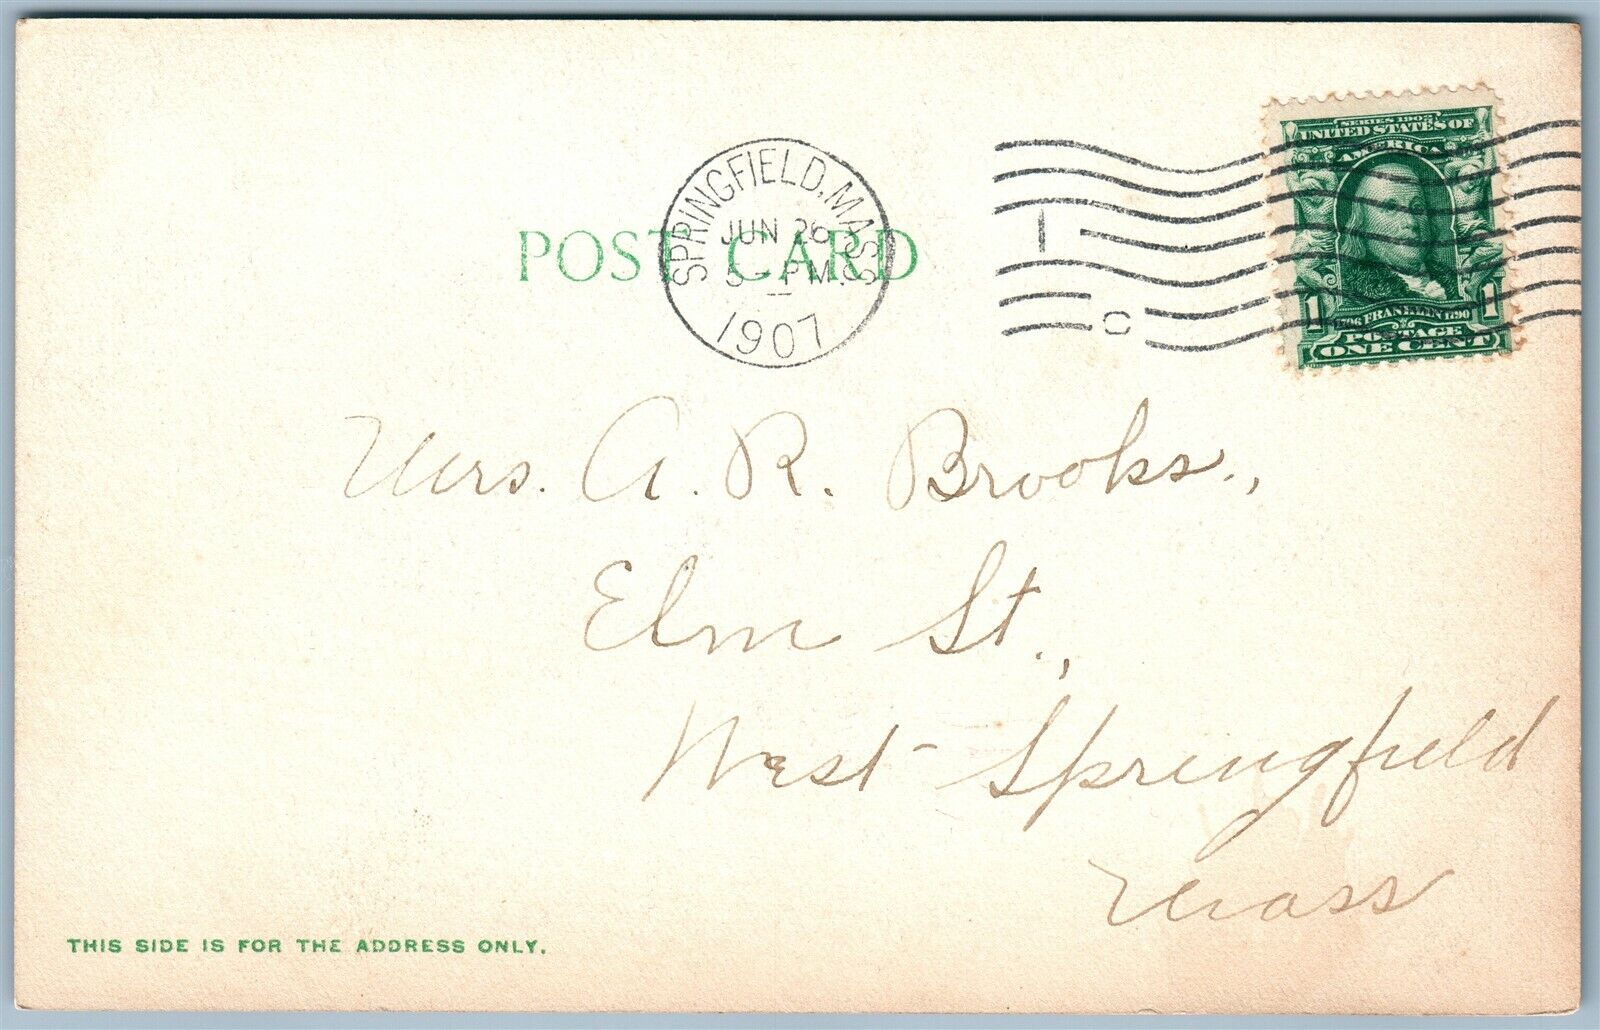 SERIES 1902
UNITED STATES OF
AMERICA
SPRINGFIELD, MASS.
JUN 26
5 - PM
1907
POST CARD
1 C
1706 FRANKLIN 1790
1 1
POSTAGE
ONE CENT
Mrs. A. R. Brooks.,
Elm St.,
West Springfield
Mass
THIS SIDE IS FOR THE ADDRESS ONLY.